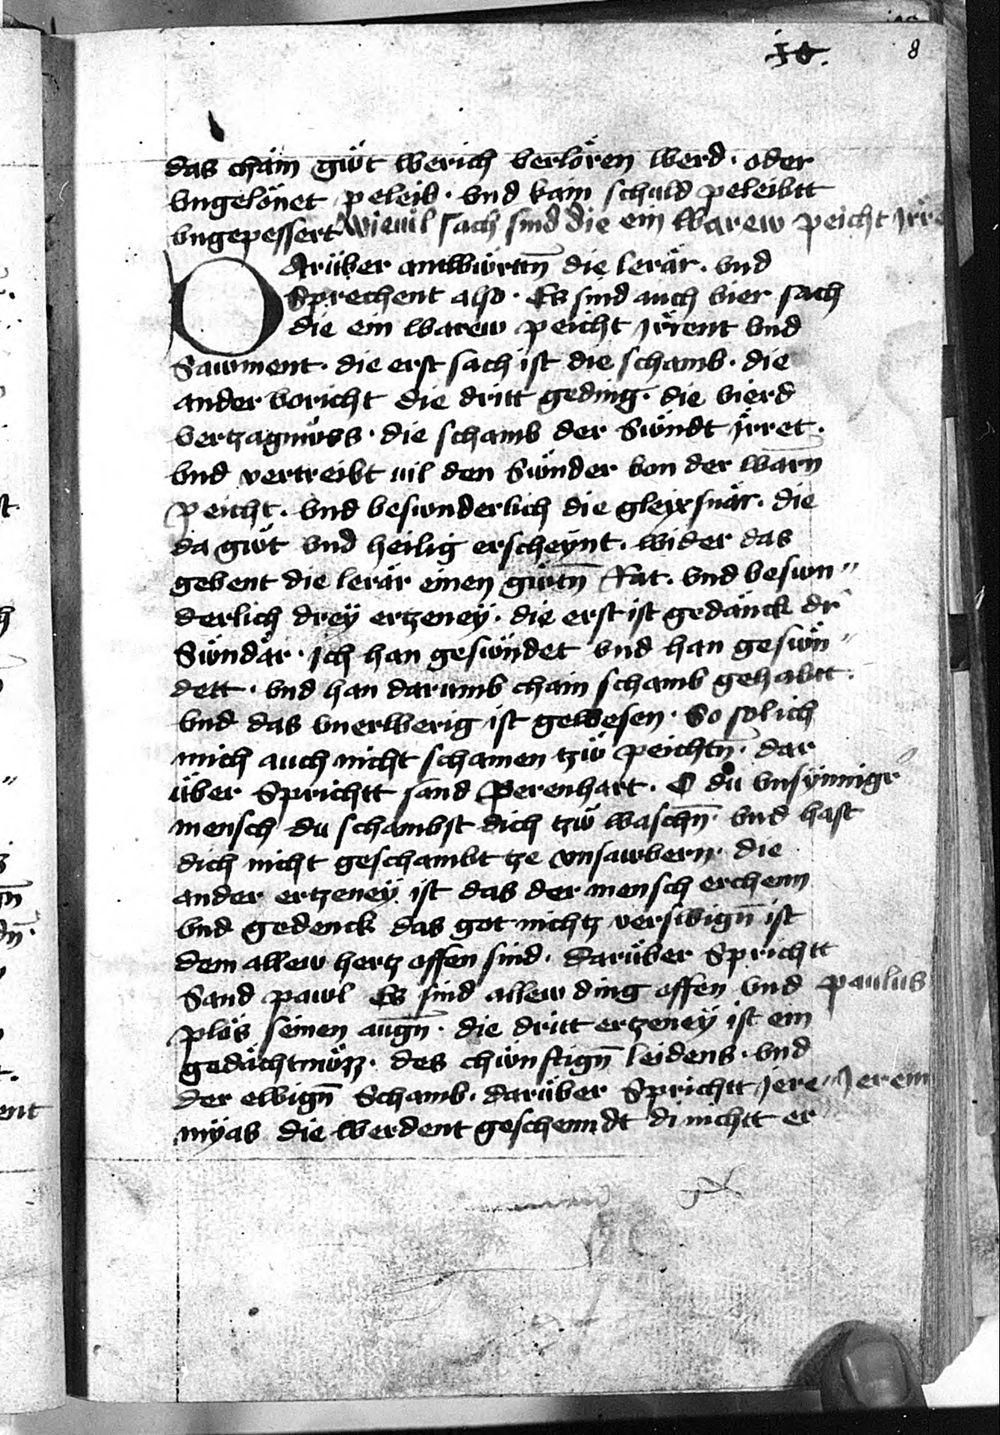 8
das chäin güt werich verlören werd · oder
vngelönet peleib · vnd kain schuld peleibtt
vngepessert wieuil sach sind die ein warew peicht jrre
Darüber antwürttn̄ die lerär · vnd
Sprechent also · Es sind auch vier sach
die ein warew peicht jrrent vnd
Sawment · die erst sach ist die schamb · die
ander voricht die dritt geding · die vierd
vertzagnüss · die schamb der Sündt jrret ·
vnd vertreibt uil den Sünder von der warn̄
peicht · vnd besunderlich die gleyxsnär · die
da güt vnd heilig erscheynt · wider das
gebent die lerär einen gütn̄ Rat · vnd besun〃
derlich dreÿ ertzeneÿ · die erst ist gedänck dr̄
Sündär · Jch han gesündet vnd han gesün〃
dett · vnd han darumb chain schamb gehabtt ·
vnd das vnerwerig ist gewesen · So sol ich
mich auch nicht schamen tzü peichtn̄ · dar
über Sprichtt sand Perenhart · O dü vnsÿnnigr
mensch du schambst dich tzü waschn̄ · vnd hast
dich nicht geschambt tze vnsawbern · die
ander ertzeneÿ ist das der mensch erchenn
vnd gedenck das got nichtz verswign̄ ist
dem allew hertz offen sind · darüber Sprichtt
Sand pawl Es sind allew ding offen vnd paulus
plös seinen augn̄ · die dritt ertzeneÿ ist ein
gedächtnüzz · des chünftign̄ leidens · vnd
der ewign̄ Schamb · darüber Sprichtt jere〃 Jerem
mÿas die werdent geschenndt di nichtt er